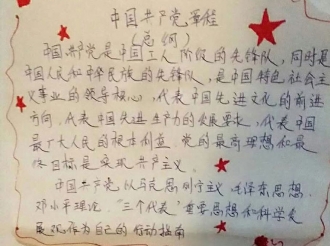 中国共产党章程
（总纲）
中国共产党是中国工人阶级的先锋队，同时是
中国人民和中华民族的先锋队，是中国特色社会主
义事业的领导核心，代表中国先进文化的前进
方向，代表中国先进生产力的发展要求，代表中国
最广大人民的根本利益。党的最高理想和最
终目标是实现共产主义。
中国共产党以马克思列宁主义、毛泽东思想、
邓小平理论、“三个代表”重要思想和科学发
展观作为自己的行动指南